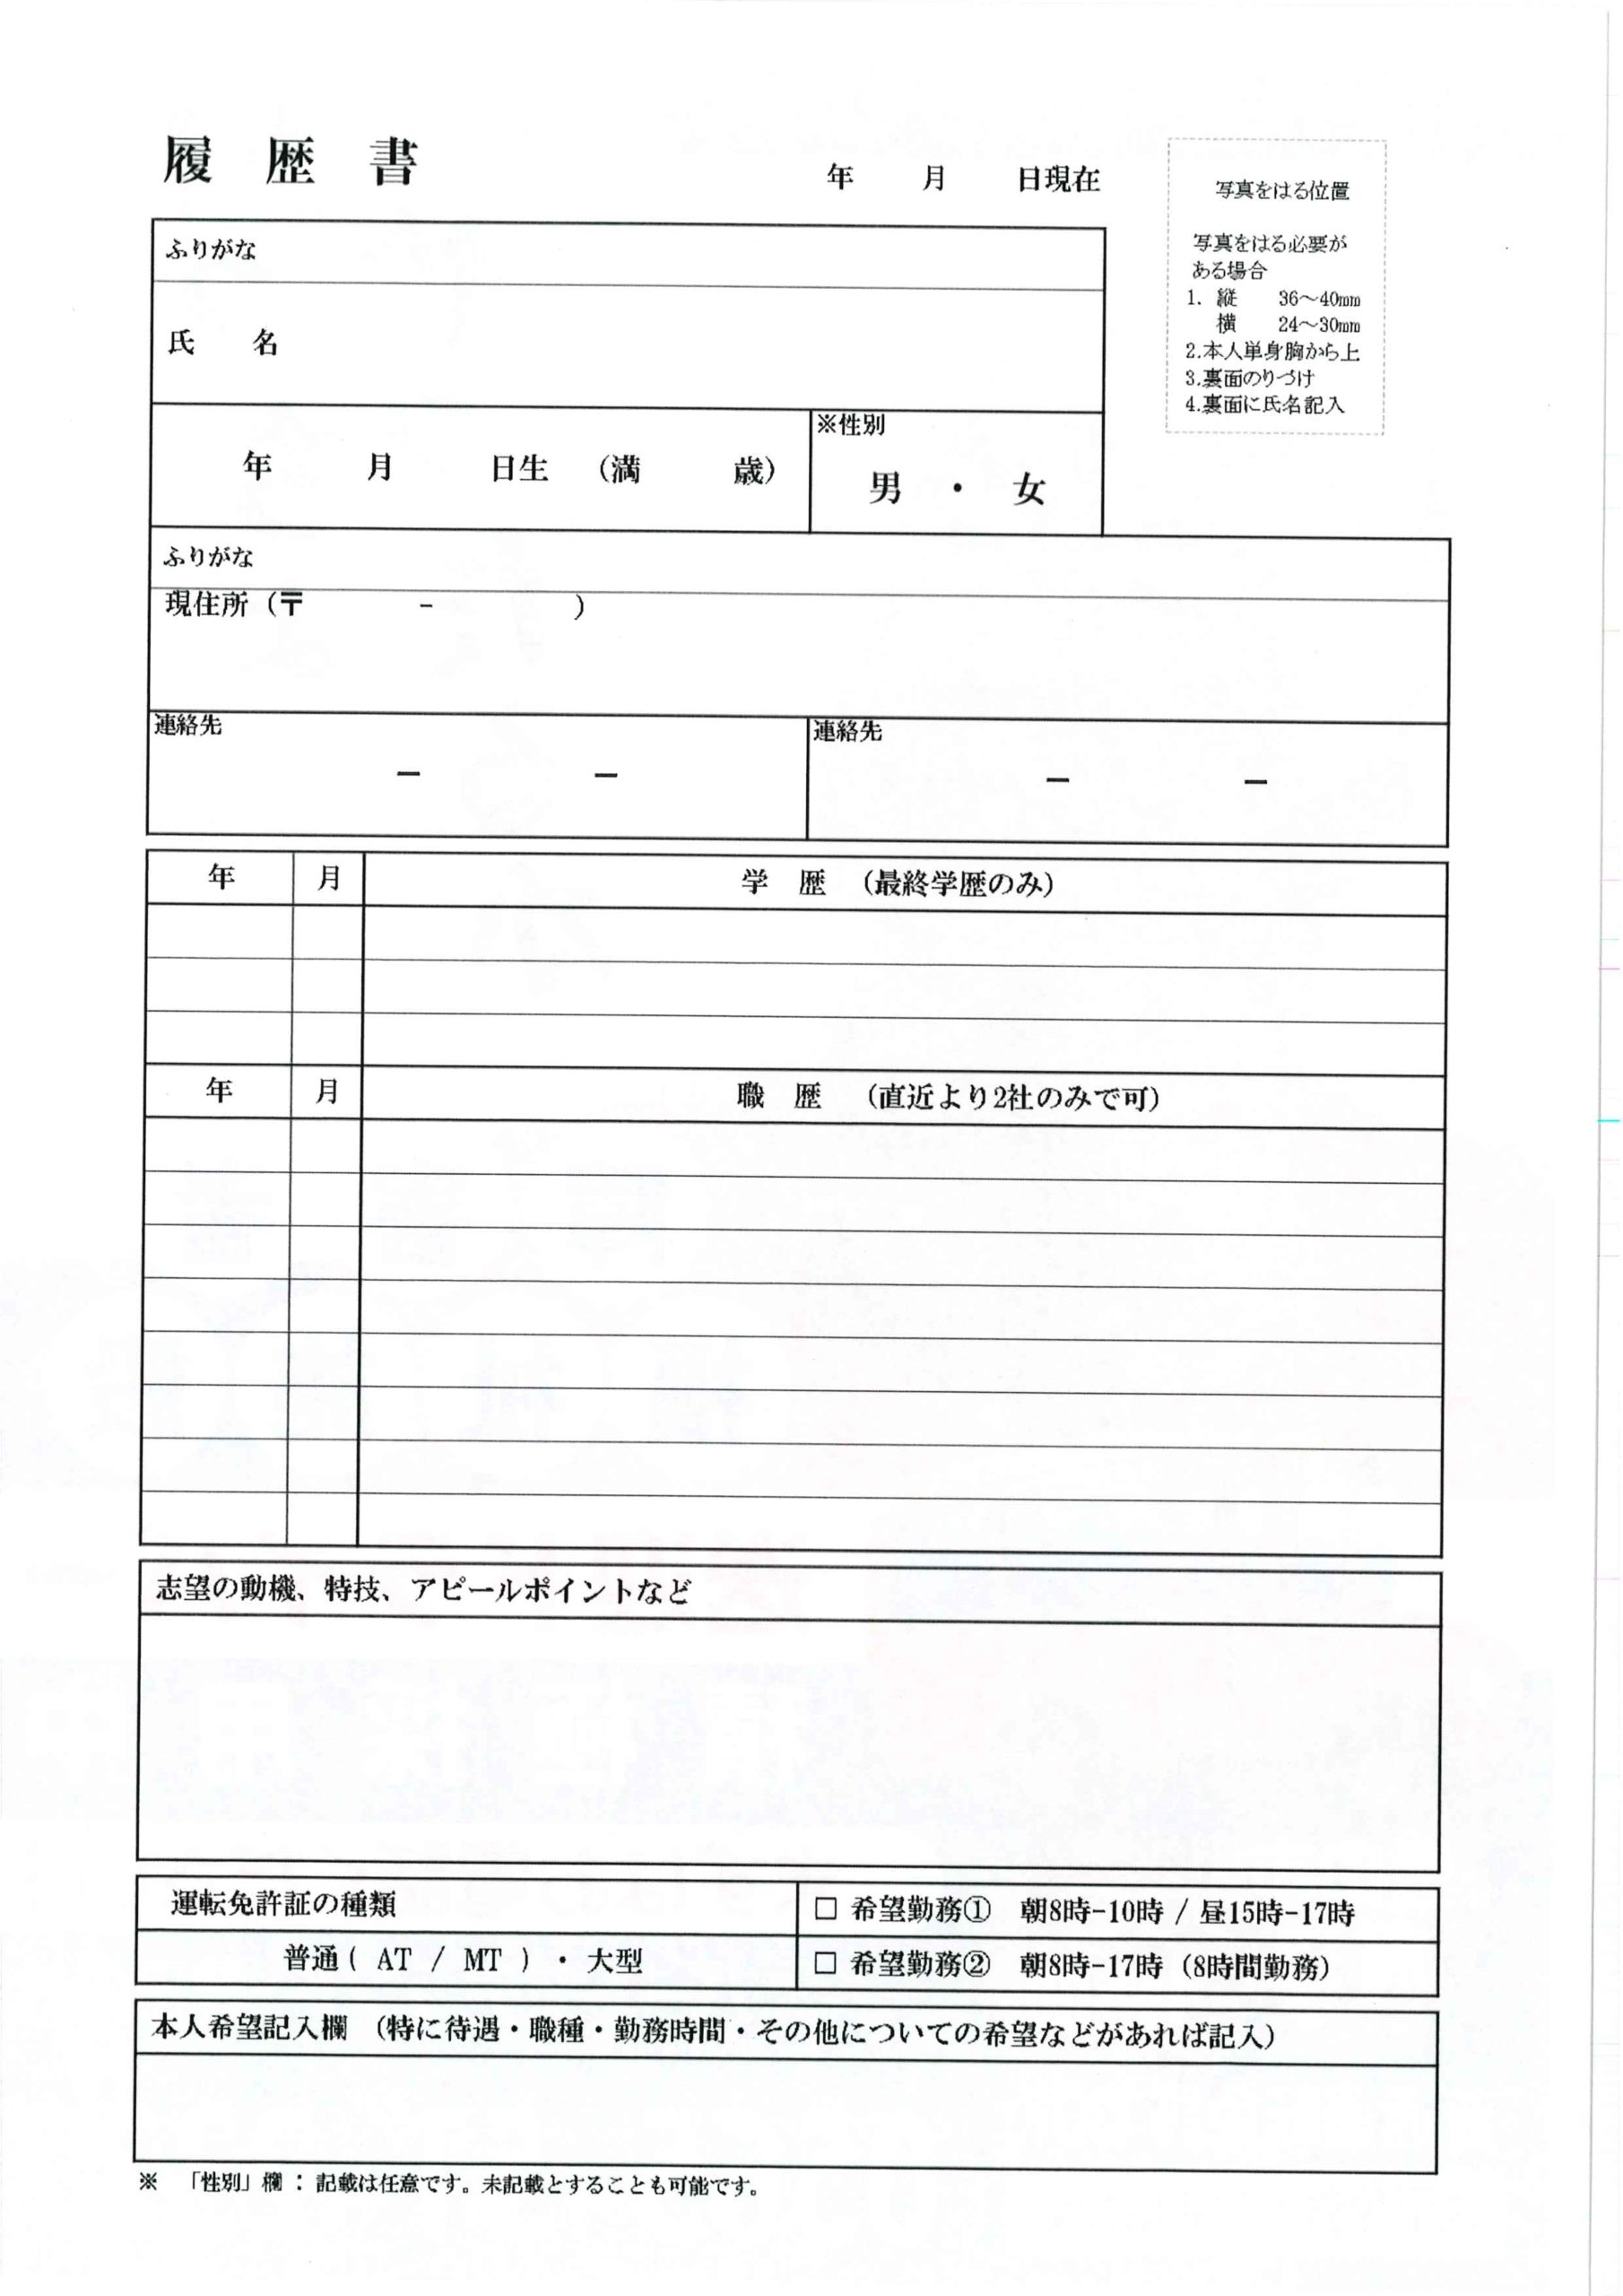 履 歴 書
年 月 日現在
写真をはる位置
写真をはる必要が
ある場合
1. 縦 36～40mm
横 24～30mm
2.本人単身胸から上
3.裏面のりづけ
4.裏面に氏名記入
ふりがな
氏 名
年 月 日生 （満 歳）
※性別
男 ・ 女
ふりがな
現住所（〒 - ）
連絡先
－ －
連絡先
－ －
年 月 学 歴 （最終学歴のみ）
年 月 職 歴 （直近より2社のみで可）
志望の動機、特技、アピールポイントなど
運転免許証の種類
普通（ AT / MT ）・ 大型
□ 希望勤務① 朝8時-10時 / 昼15時-17時
□ 希望勤務② 朝8時-17時（8時間勤務）
本人希望記入欄 （特に待遇・職種・勤務時間・その他についての希望などがあれば記入）
※ 「性別」欄 ： 記載は任意です。未記載とすることも可能です。